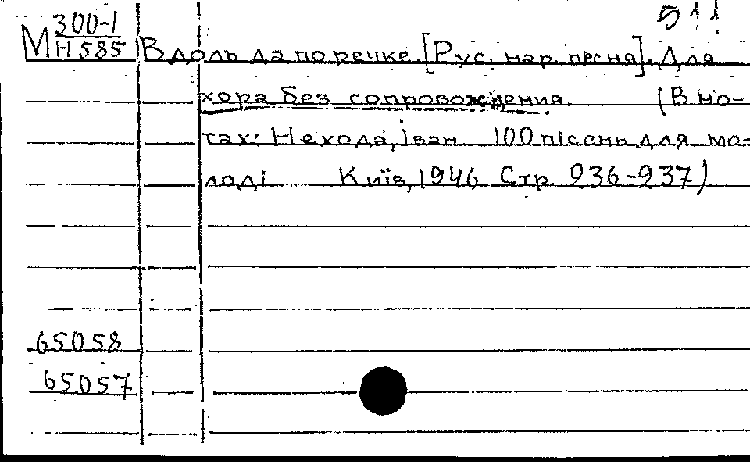 511
М 300-1
Н585 Вдоль да по речке. [Рус. нар. песня]. Для
хора без сопровождения. (В но-
тах: Нехода, Iван 100 пiсень для мо-
лодi Київ, 1946 Стр. 236-237)
65058
65057